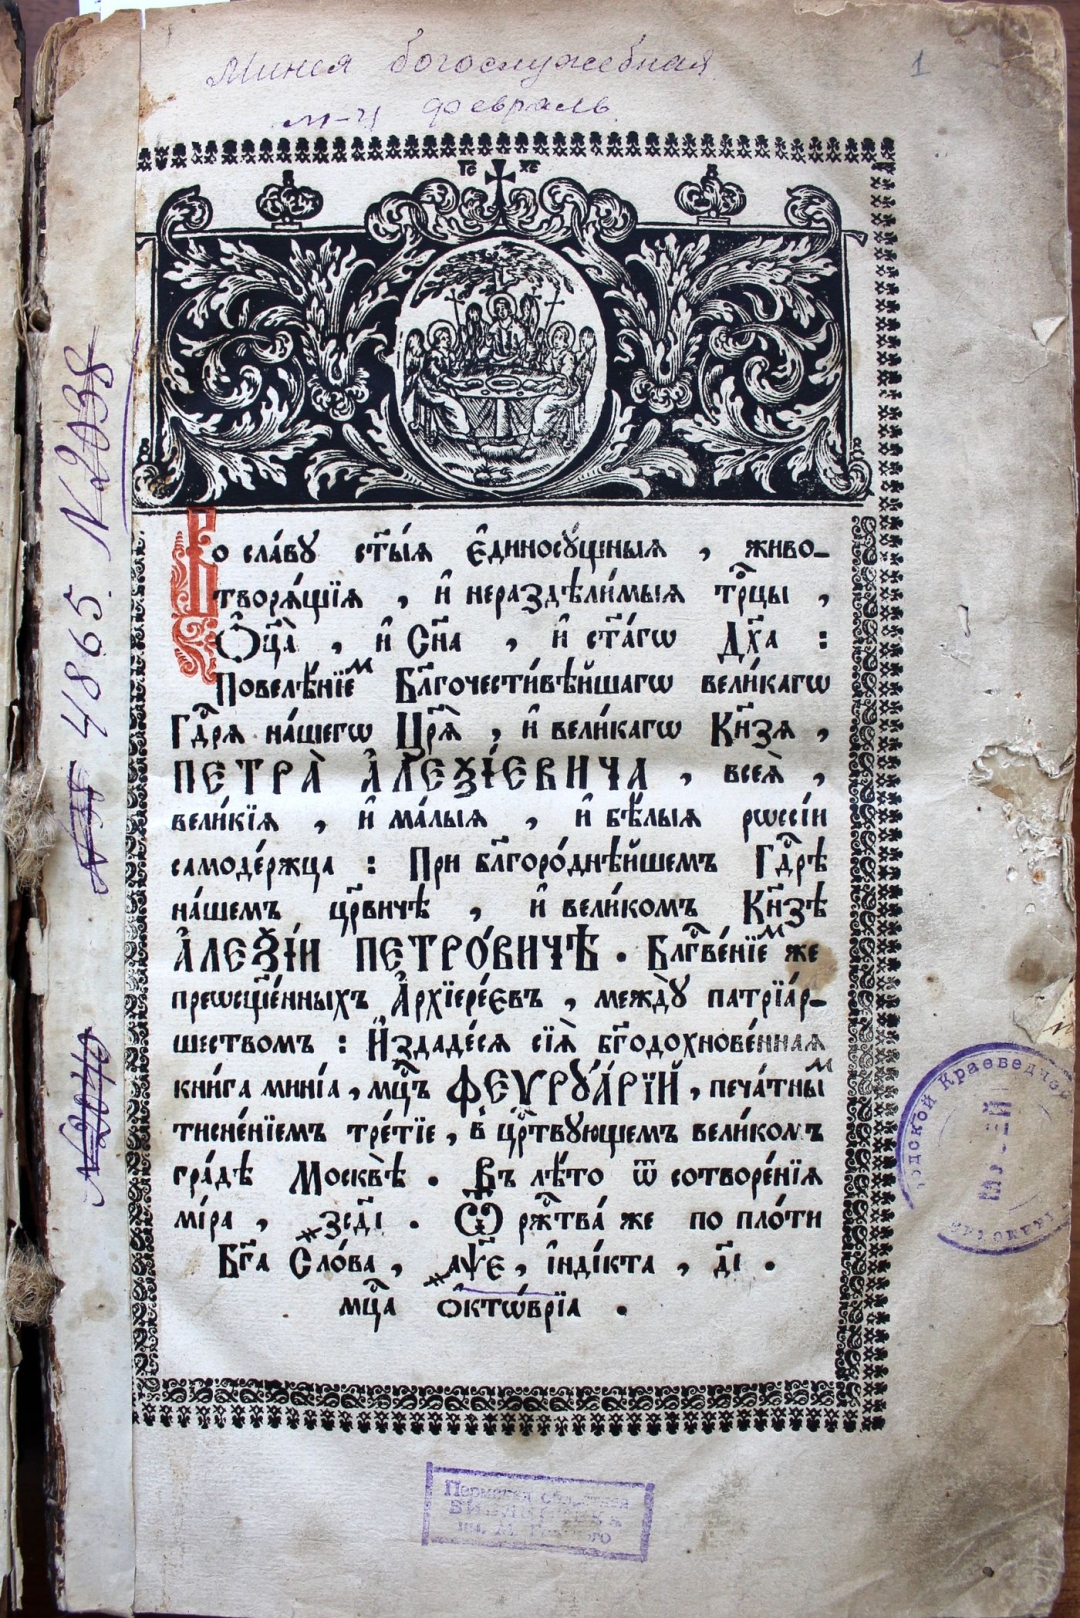 Минея богослужебная
м-ц февраль.
1
І҃С Х҃С
Во сла́ву ст҃ы́ѧ є҆диносꙋ́щныѧ , живо-
творѧ́щїѧ , и҆ нераздѣли́мыѧ трⷪ҇цы ,
Ѻ҆ц҃а̀ , и҆ Сн҃а , и҆ ст҃а́гѡ Дх҃а :
Повелѣ́нїеⷨ Бл҃гочести́вѣйшагѡ вели́кагѡ
Гдⷭ҇рѧ на́шегѡ Цр҃ѧ̀ , и҆ вели́кагѡ Кн҃зѧ ,
ПЕТРА̀ А҆ЛЕѮІ́ЕВИЧА , всеѧ̀ ,
вели́кїѧ , и҆ ма́лыѧ , и҆ бѣ́лыѧ рѡссі́и
самоде́ржца : При бл҃горо́днѣйшемъ Гдⷭ҇рѣ
на́шемъ цр҃вичѣ , и҆ вели́комъ Кн҃зѣ
А҆ЛЕѮІ́И ПЕТРО́ВИЧѢ . Блгⷭ҇ве́нїеⷨ же
преѡсщ҃е́нныхъ А҆рхїере́євъ , междꙋ̀ патрїа́р-
шествомъ : И҆здаде́сѧ сїѧ̀ бг҃одохнове́ннаѧ
кни́га миніа , мц҃ъ ФЕѴРꙊА́РЇЙ , печа́тныⷨ
тисне́нїемъ тре́тїе , в҆ црⷭ҇твꙋющемъ вели́комъ
гра́дѣ Москвѣ̀ . Въ лѣ́то ѿ сотворе́нїѧ
мі́ра , ҂зсд҃і . Ѿ ржⷭ҇тва́ же по пло́ти
Бг҃а Сло́ва , ҂аѱ҃е , і҆нді́кта , д҃і .
мц҃а ѻ҆ктѡ́врїа .
N2038
4865.
N 35
N2040
Краеведчес
МУЗЕЙ
Пермская областная
БИБЛИОТЕКА
им. М. Горького